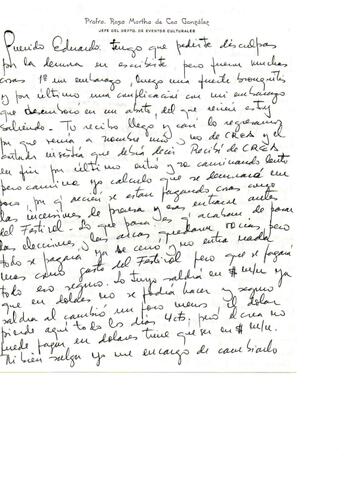 Profra. Rosa Martha de Cea González
JEFE DEL DEPTO. DE EVENTOS CULTURALES
Querido Eduardo: tengo que pedirte disculpas
por la demora en escribirte pero fueron muchas
cosas 1º mi embarazo, luego una fuerte bronquitis
y por último una complicación con mi embarazo
que desembocó en un aborto, del que recién estoy
saliendo. Tu recibo llegó y casi lo regresamos
por que venía a nombre tuyo y no de CREA y el
insistía que debía decir Recibí de CREA
en fin por último entró y va caminando lento
pero camina yo calculo que se demorará un
poco, por q' recién se están pagando cosas como
las inserciones de prensa y esas entraron antes
del Festival. Lo que pasa es q' acaban de pasar
las elecciones, las arcas quedaron vacías pero
todo se pagará ya se cerró y no entra nada
mas como gasto del Festival pero que se pagará
todo eso seguro. Lo tuyo saldrá en $ m/n ya
que en dolares no se podrá hacer y seguro
saldrá al cambio un poco menos. El dolar
pierde aquí todos los días 4cts. pero el crea no
puede pagar en dolares tiene que ser en $ m/n.
Ni bien salga yo me encargo de cambiarlo